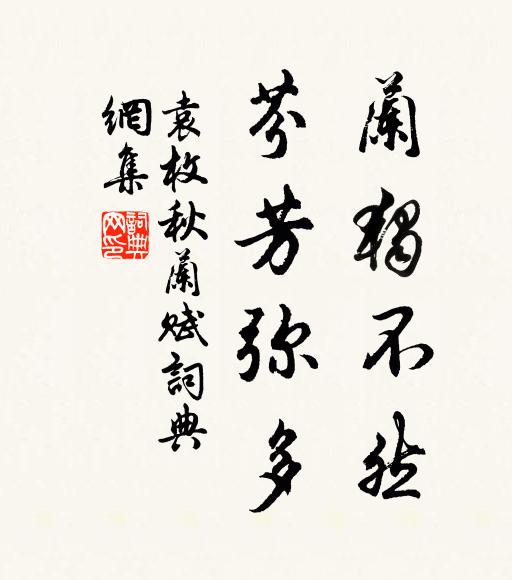 蘭獨不然
芬芳弥多
袁枚秋蘭賦詞典
網集
詞典
网印